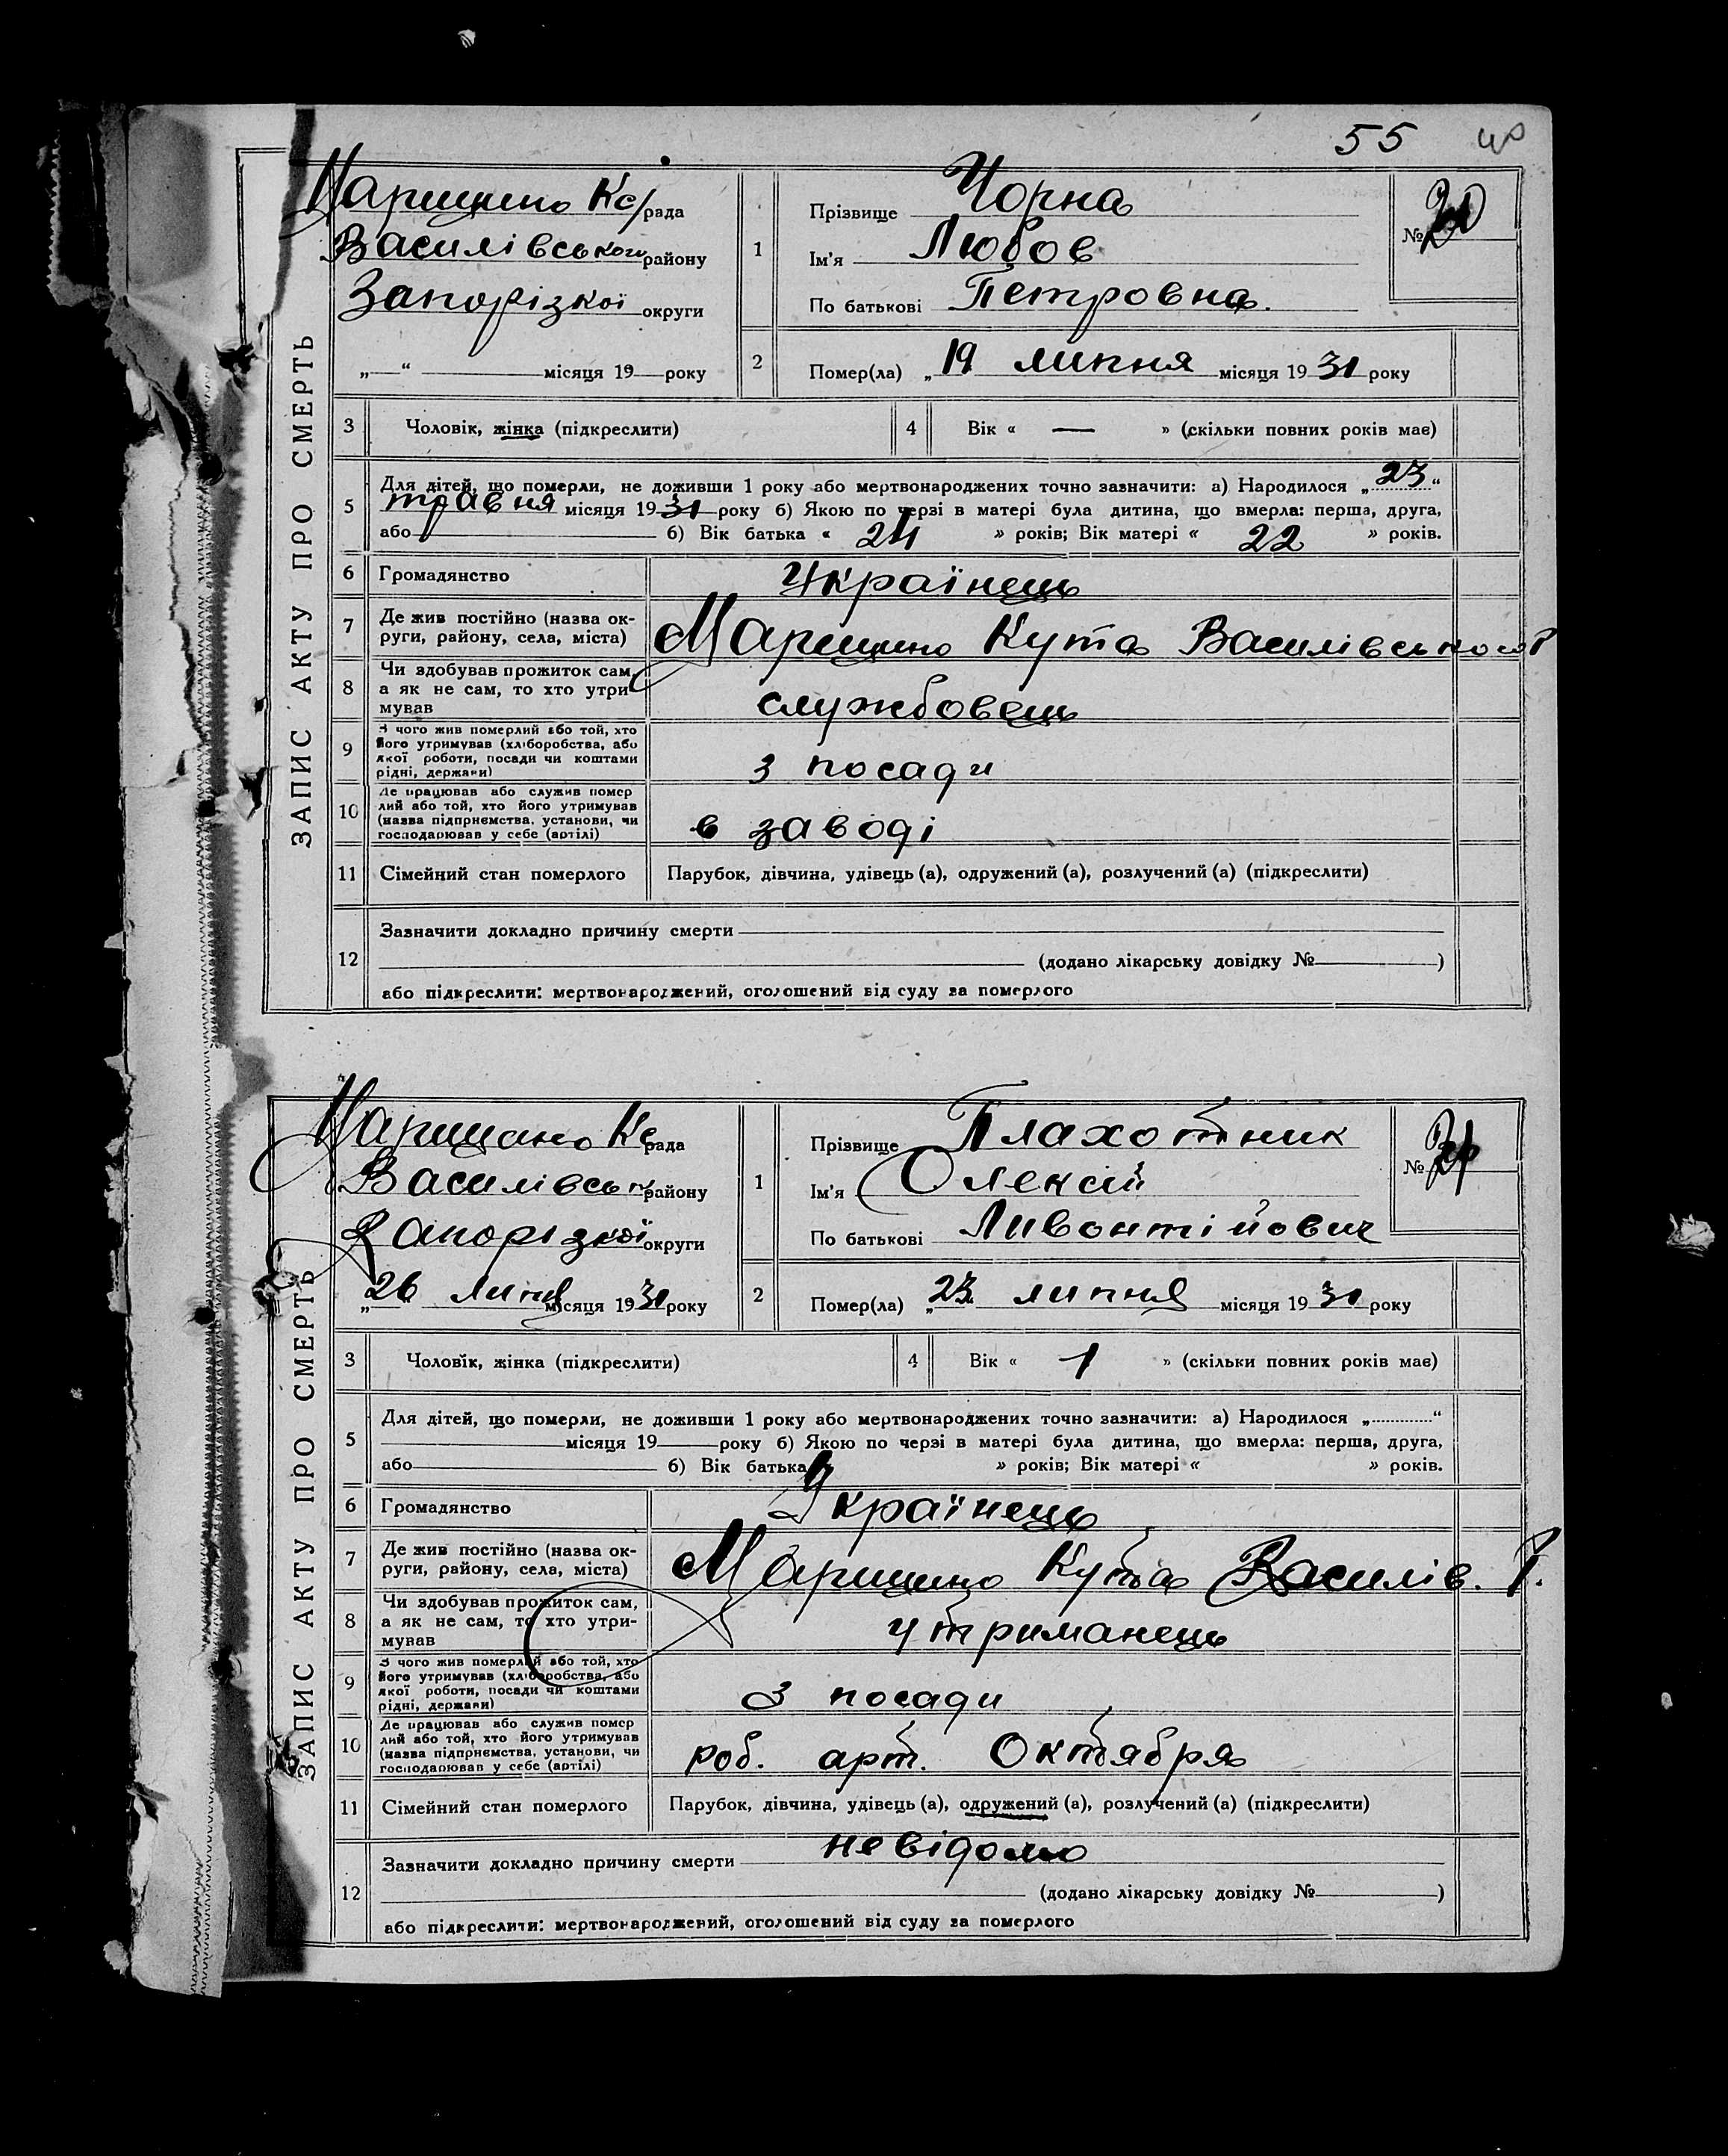 55 40
ЗАПИС АКТУ ПРО СМЕРТЬ
Марицино Кс/рада
Василівського району
Запорізкої округи
„ “ місяця 19 року
1
Прізвище Чорна
Ім'я Любов
По батькові Петровна.
№ 20
2
Помер(ла) „19 липня місяця 1931 року
3 Чоловік, жінка (підкреслити)
4 Вік « — » (скільки повних років має)
5 Для дітей, що померли, не доживши 1 року або мертвонароджених точно зазначити: а) Народилося „23“
травня місяця 1931 року б) Якою по черзі в матері була дитина, що вмерла: перша, друга,
або б) Вік батька « 24 » років; Вік матері « 22 » років.
6 Громадянство Українець
7 Де жив постійно (назва ок-
руги, району, села, міста) Марицино Кута Василівського Р
8 Чи здобував прожиток сам,
а як не сам, то хто утри-
мував службовець
9 З чого жив померлий або той, хто
його утримував (хліборобства, або
якої роботи, посади чи коштами
рідні, держави) з посади
10 Де працював або служив помер
лий або той, хто його утримував
(назва підприємства, установи, чи
господарював у себе (артілі) в заводі
11 Сімейний стан померлого Парубок, дівчина, удівець (а), одружений (а), розлучений (а) (підкреслити)
12 Зазначити докладно причину смерти
(додано лікарську довідку № )
або підкреслити: мертвонароджений, оголошений від суду за померлого
ЗАПИС АКТУ ПРО СМЕРТЬ
Марицано Кс рада
Василівськ району
Запорізкої округи
„26 липня місяця 1931 року
1
Прізвище Плахотник
Ім'я Олексій
По батькові Ливонтійович
№ 21
2
Помер(ла) „23 липня місяця 1931 року
3 Чоловік, жінка (підкреслити)
4 Вік « 1 » (скільки повних років має)
5 Для дітей, що померли, не доживши 1 року або мертвонароджених точно зазначити: а) Народилося „ “
місяця 19 року б) Якою по черзі в матері була дитина, що вмерла: перша, друга,
або б) Вік батька « » років; Вік матері « » років.
6 Громадянство Українець
7 Де жив постійно (назва ок-
руги, району, села, міста) Марицино Кута Василів. Р.
8 Чи здобував прожиток сам,
а як не сам, то хто утри-
мував утриманець
9 З чого жив померлий або той, хто
його утримував (хліборобства, або
якої роботи, посади чи коштами
рідні, держави) З посади
10 Де працював або служив помер
лий або той, хто його утримував
(назва підприємства, установи, чи
господарював у себе (артілі) роб. арт. Октября
11 Сімейний стан померлого Парубок, дівчина, удівець (а), одружений (а), розлучений (а) (підкреслити)
12 Зазначити докладно причину смерти невідомо
(додано лікарську довідку № )
або підкреслити: мертвонароджений, оголошений від суду за померлого